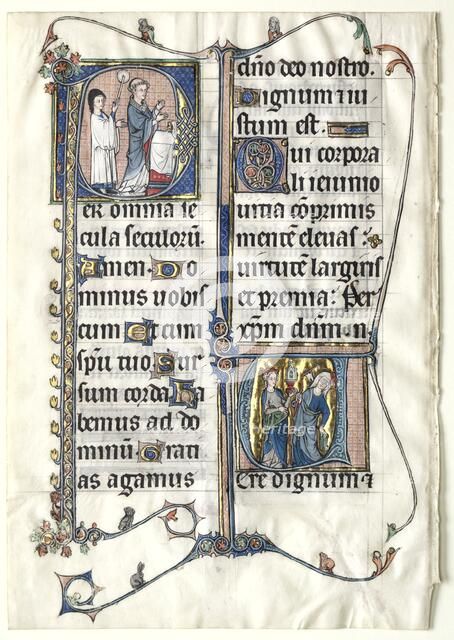 Per omnia se
cula seculorū.
Amen. Do
minus uobis
cum Et cum
spū tuo Sur
sum corda Ha
bemus ad do
minū. Grati
as agamus
dño deo nostro.
Dignum ⁊ iu
stum est.
Qui corpora
li ieiunio
uitia cōprimis
mentē eleuas:
uirtutē largiris
et premia: Per
xp̄m dn̄m n.
UEre dignum ⁊
heritage